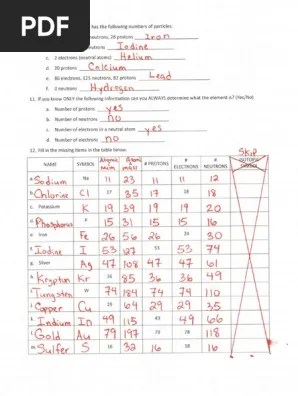 PDF
has the following numbers of particles:
29 protons Iron
neutrons Iodine
c. 2 electrons (neutral atoms) Helium
d. 20 protons Calcium
e. 86 electrons, 125 neutrons, 82 protons Lead
f. 0 neutrons Hydrogen
11. If you know ONLY the following information can you ALWAYS determine what the element is? (Yes/No)
a. Number of protons yes
b. Number of neutrons no
c. Number of electrons in a neutral atom yes
d. Number of electrons no
12. Fill in the missing items in the table below.
Skip
NAME SYMBOL Atomic num Atomic mass # PROTONS # ELECTRONS # NEUTRONS
a. Sodium Na 11 23 11 11 12
b. Chlorine Cl 17 35 17 18 18
c. Potassium K 19 39 19 19 20
d. Phosphorus P 15 31 15 15 16
e. Iron Fe 26 56 26 24 30
f. Iodine I 53 127 53 53 74
g. Silver Ag 47 108 47 47 61
h. Krypton Kr 36 85 36 36 49
i. Tungsten W 74 184 74 74 110
j. Copper Cu 29 64 29 29 35
k. Indium In 49 115 49 49 66
l. Gold Au 79 197 79 78 118
m. Sulfer S 16 32 16 18 16